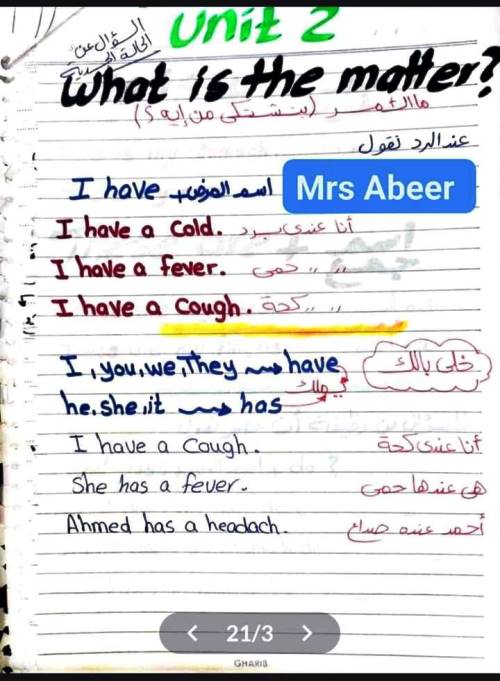 Unit 2
السؤال عن
الحالة الصحية
What is the matter?
ما الأمر (بتشتكى من إيه؟)
عند الرد نقول
I have + اسم المرض Mrs Abeer
I have a cold. أنا عندى برد
I have a fever. " " حمى
I have a cough. " " كحة
I, you, we, They → have خلى بالك
يملك
he, she, it → has
I have a cough. أنا عندى كحة
She has a fever. هى عندها حمى
Ahmed has a headach. أحمد عنده صداع
< 21/3 >
GHARIB